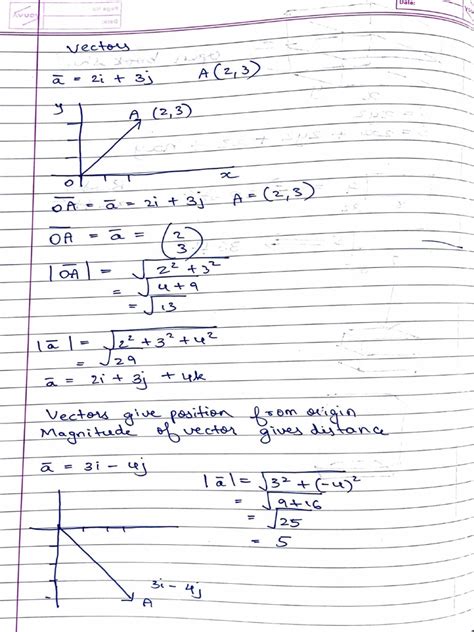 Date:
Vectors
a̅ = 2i + 3j A(2,3)
y
A (2,3)
O x
O̅A̅ = a̅ = 2i + 3j A = (2,3)
O̅A̅ = a̅ = (2 3)
|O̅A̅| = √2² + 3²
= √4 + 9
= √13
|a̅| = √2² + 3² + 4²
= √29
a̅ = 2i + 3j + 4k
Vectors give position from origin
Magnitude of vector gives distance
a̅ = 3i - 4j |a̅| = √3² + (-4)²
= √9+16
= √25
= 5
3i - 4j
A